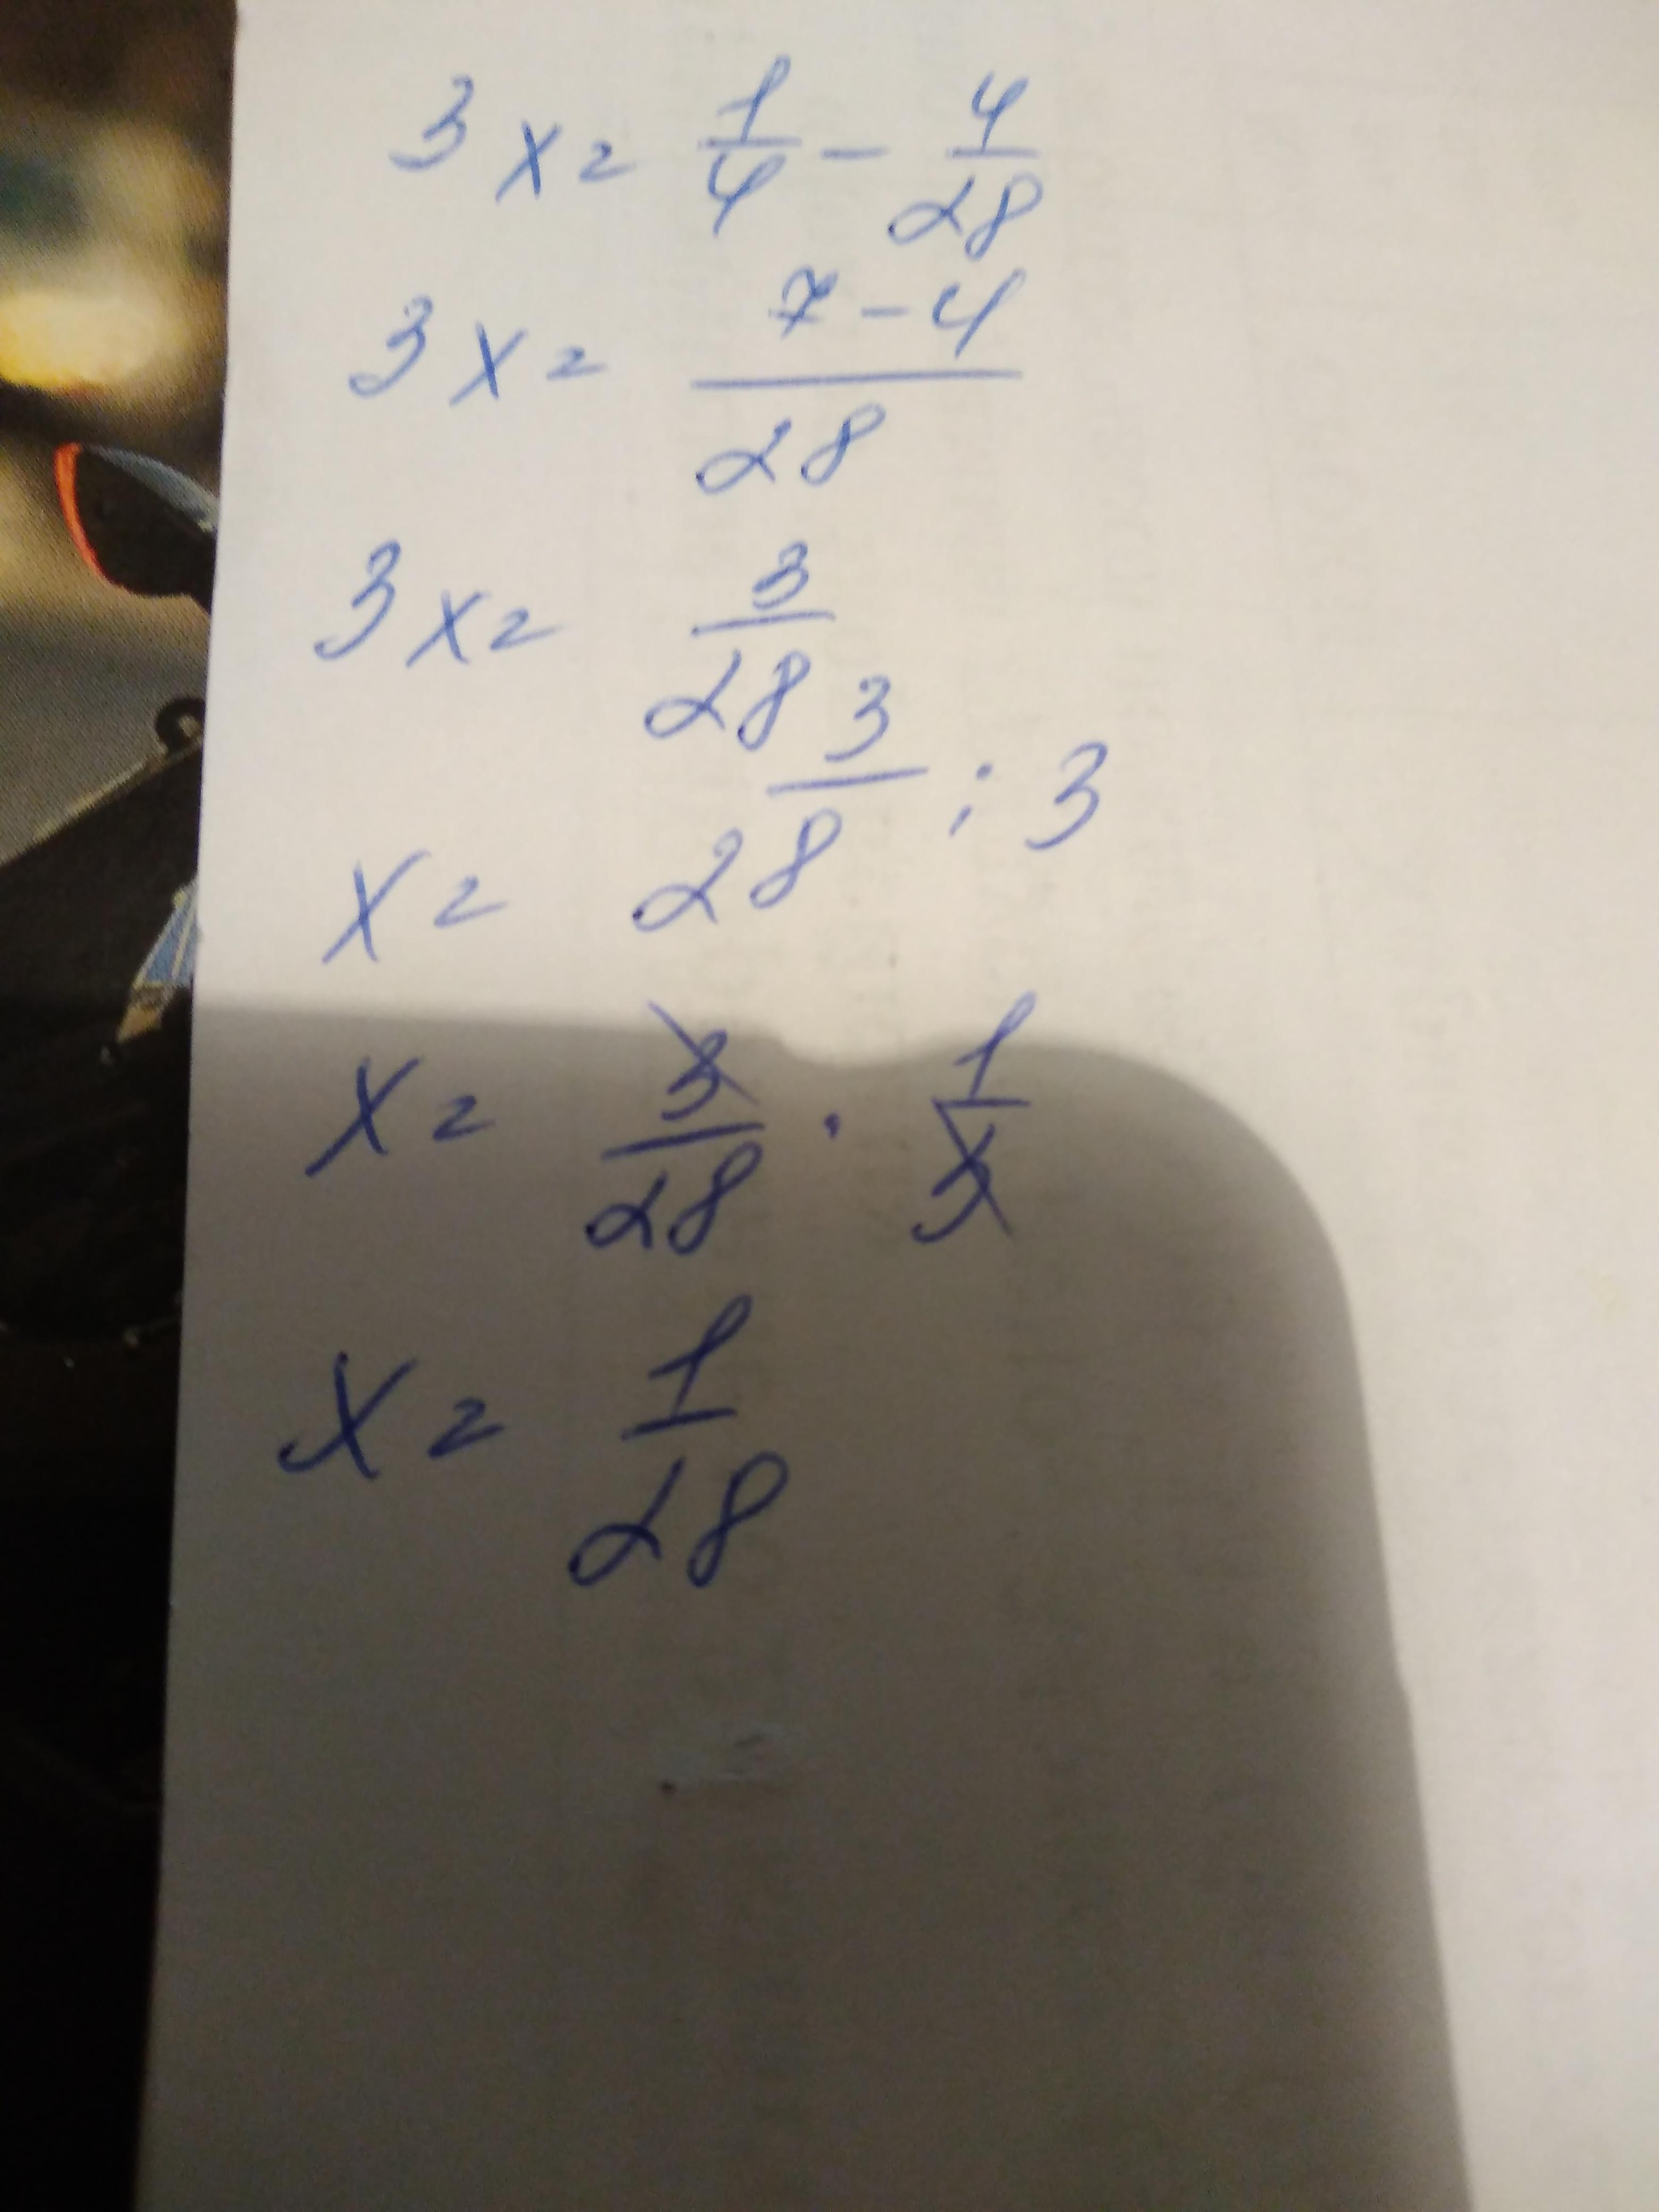 3x = 1/4 - 4/28
3x = (7-4)/28
3x = 3/28
x = 3/28 : 3
x = 3/28 · 1/3
x = 1/28